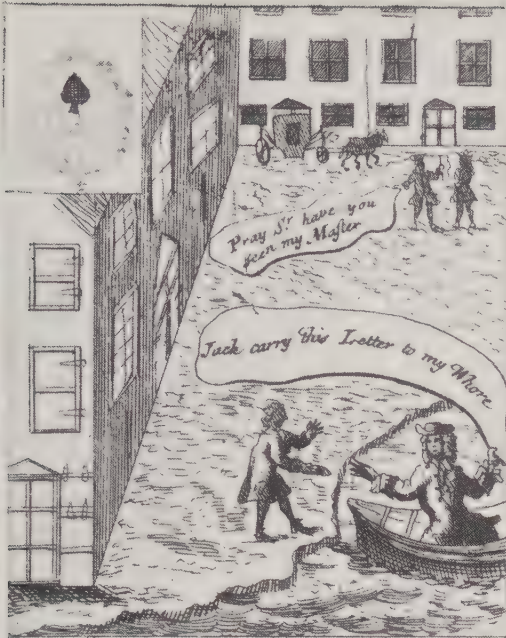 Pray Sr. have you
seen my Master
Jack carry this Letter to my Whore